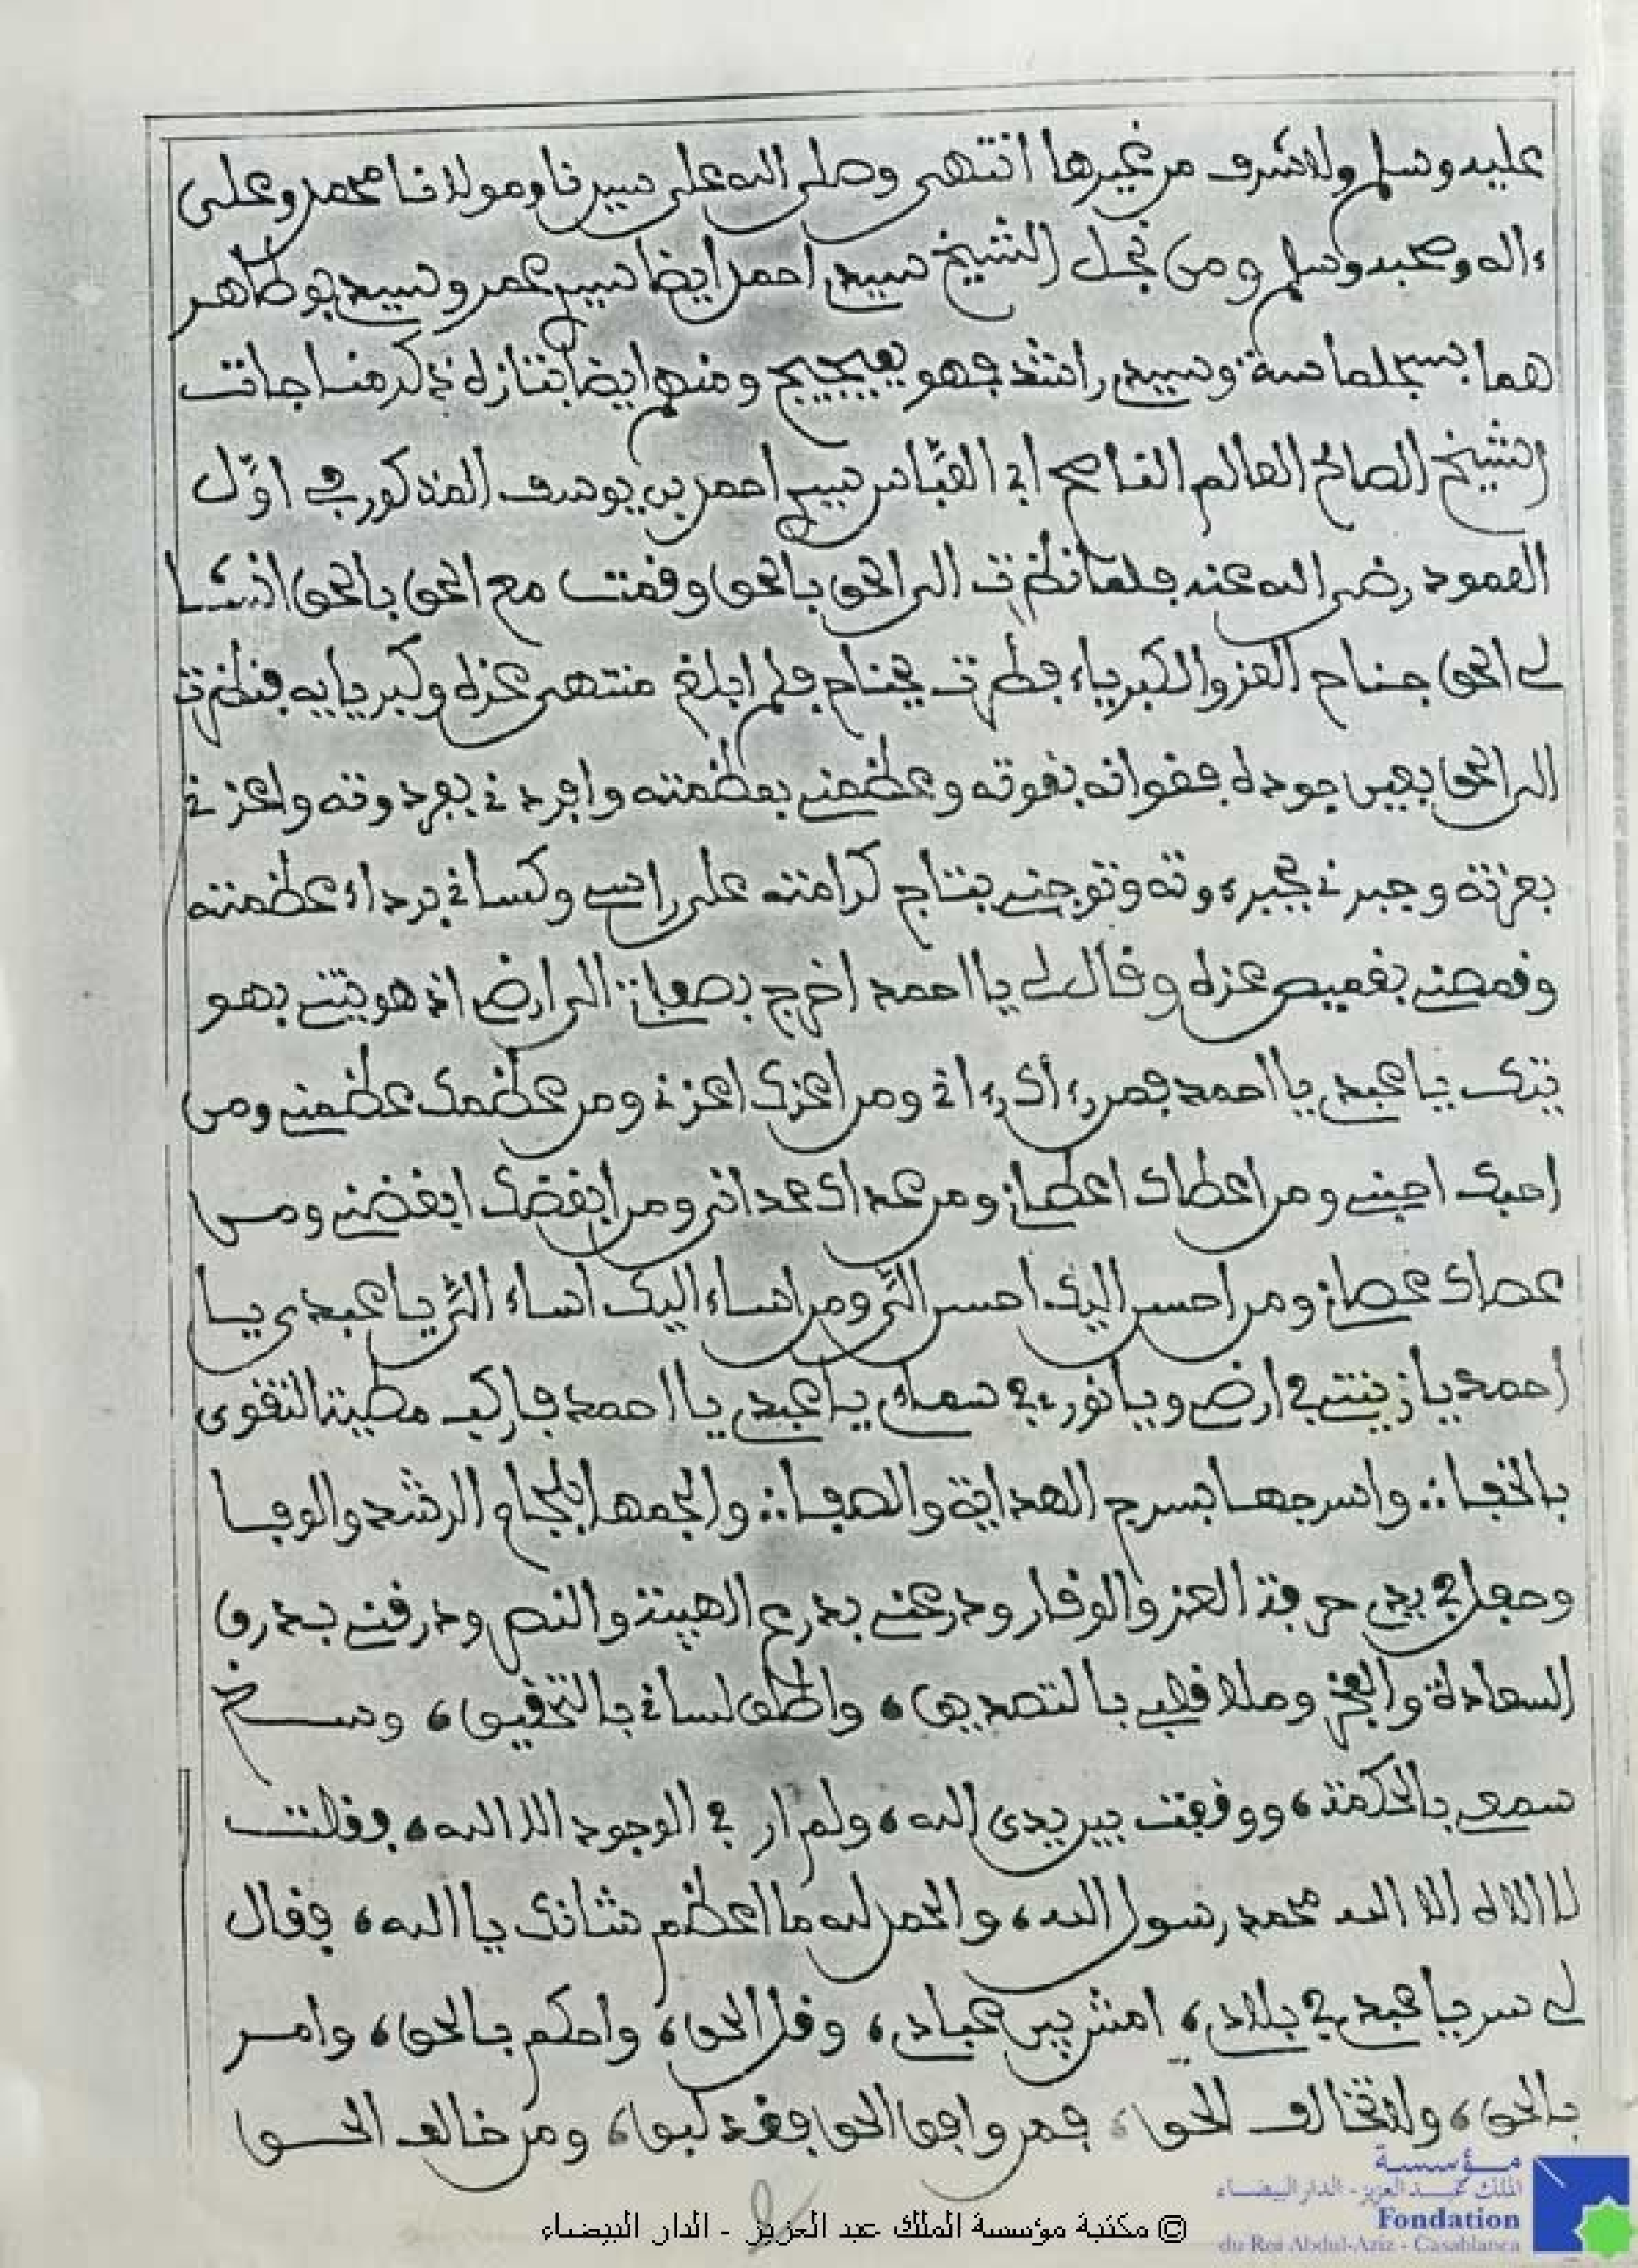 عليه وسلم ولا شرف من غيرها انتهى وصلى الله على سيدنا ومولانا محمد وعلى
ءاله وصحبه وسلم ومن نجل الشيخ سيدي احمد ايضا سيدي عمر وسيدي بوطاهر
هما بسجلماسة وسيدي راشد فهو بفجيج ومنهم ايضا بتازة ذكر مناجات
الشيخ الصالح العالم الناصح ابي العبّاس سيدي احمد بن يوسف المذكور في اوّل
العمود رضي الله عنه فلما نظرت الى الحق بالحق وقمت مع الحق بالحق انشا
لي الحق جناح العز والكبرياء فطرت بجناح فلم ابلغ منتهى عزه وكبريايه فنظرت
الى الحق بعين جوده فقواني بقوته وعظمني بعظمته وافردني بفردوته واعزني
بعزته وجبرني بجبروته وتوجني بتاج كرامته على راسي وكساني برداء عظمته
وقمصني بقميص عزه وقال لي يا احمد اخرج بصفاتي الى ارضي انا هويتي بهو
يتك يا عبدي يا احمد فمن رءاك رءاني ومن اعزك اعزني ومن عظمك عظمني ومن
احبك احبني ومن اعطاك اعطاني ومن عداك عداني ومن ابغضك ابغضني ومن
عصاك عصاني ومن احسن اليك احسن الىّ ومن اساء اليك اساء الىّ يا عبدي يا
احمد يا زينتي في ارضي ويا نوري في سمائي يا عبدي يا احمد فاركب مطية التقوى
بالخفا واسرجها بسرج الهداية والصفا والجمها بلجام الرشد والوفا
وجعل في يدي حرفة العز والوقار ودرعني بدرع الهيبة والنصر ودرقني بدرق
السعادة والفخر وملا قلبي بالتصديق، واطلق لساني بالتحقيق، وسخر
سمعي بالحكمة، ووقفت بين يدي الله، ولم ار في الوجود الا الله، فقلت
لا اله الا الله محمد رسول الله، والحمد لله ما اعظم شانك يا الله، فقال
لي سر يا عبدي في بلادي، امش بين عبادي، وقل الحق، واحكم بالحق، وامر
بالحق، ولا تخالف الحق، فمن وافق الحق فقد ومن خالف الحق
مؤسسة
الملك عبد العزيز - الدار البيضاء
Fondation
du Roi Abdul-Aziz - Casablanca
© مكتبة مؤسسة الملك عبد العزيز - الدار البيضاء